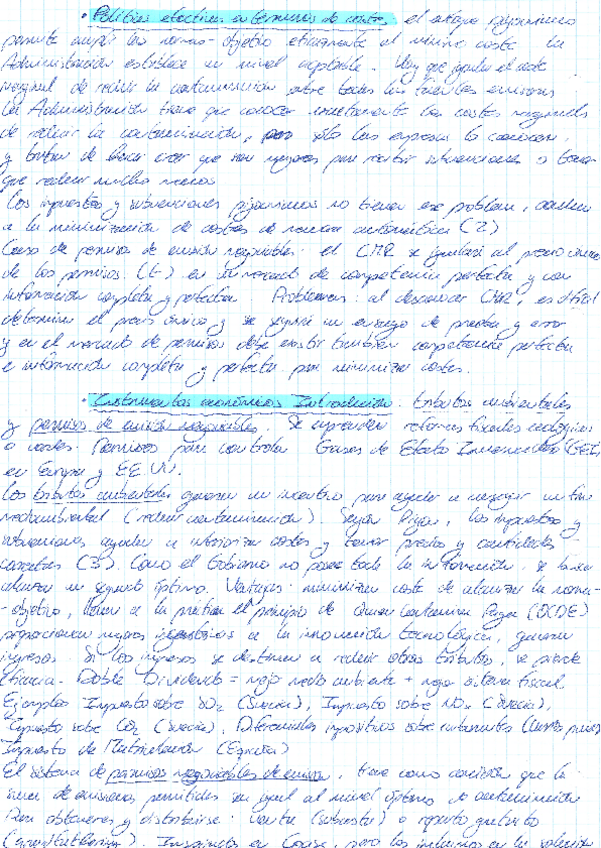 • Políticas efectivas en términos de costes, el enfoque pigouviano
permite cumplir las normas-objetivo eficazmente al mínimo coste. La
Administración establece un nivel aceptable. Hay que igualar el coste
marginal de reducir la contaminación entre todas las fuentes emisoras
La Administración tiene que conocer correctamente los costes marginales
de reducir la contaminación, pero sólo las empresas lo conocen,
y tratan de hacer creer que son mayores para recibir subvenciones o tener
que reducir mucho menos.
Los impuestos y subvenciones pigouvianos no tienen ese problema, conducen
a la minimización de costes de manera automática (2)
Caso de permisos de emisión negociables: el CMR se igualará al precio único
de los permisos (t) en un mercado de competencia perfecta y con
información completa y perfecta. Problemas: al desconocer CMR, es difícil
determinar el precio único y se seguirá un ensayo de prueba y error
y en el mercado de permisos debe existir también competencia perfecta
e información completa y perfecta para minimizar costes.
• Instrumentos económicos Introducción. Tributos ambientales
y permisos de emisión negociables. Se emprenden reformas fiscales ecológicas
o verdes. Permisos para controlar Gases de Efecto Invernadero (GEI)
en Europa y EE.UU.
Los tributos ambientales generan un incentivo para ayudar a conseguir un fin
medioambiental (reducir contaminación). Según Pigou, los impuestos y
subvenciones ayudan a interiorizar costes y tener precios y cantidades
correctas (3). Como el Gobierno no posee toda la información, se busca
alcanzar un segundo óptimo. Ventajas: minimizan coste de alcanzar la norma-
-objetivo, llevan a la práctica el principio de Quien Contamina Paga (OCDE)
proporcionan mayores incentivos a la innovación tecnológica, generan
ingresos. Si los ingresos se destinan a reducir otros tributos, se pierde
eficacia. Doble Dividendo = mejor medio ambiente + mejor sistema fiscal
Ejemplos Impuesto sobre SO₂ (Suecia), Impuesto sobre NOx (Suecia),
Impuesto sobre CO₂ (Suecia), Diferenciales impositivos sobre carburantes
Impuesto de Matriculación (España)
El sistema de permisos negociables de emisión, tiene como condición que la
suma de emisiones permitidas sea igual al nivel óptimo de contaminación
Para obtenerse y distribuirse: Venta (subasta) o reparto gratuito
(grandfathering). Inspirados en Coase, pero los incluimos en la solución